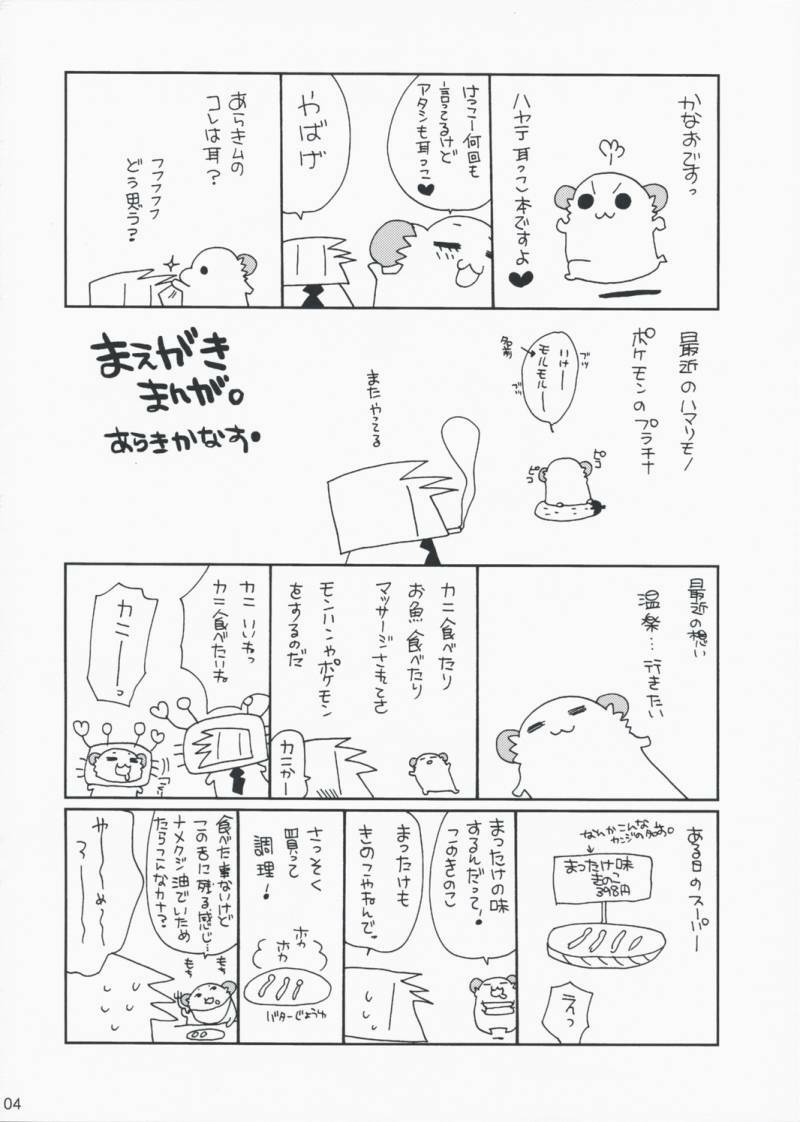 かなおですっ
ハヤテ耳っこ本ですよ♥
けっこー何回も
言ってるけど
アタシも耳っこ♥
やばげ
あらきムの
コレは耳？
フフフフフ
どう思う？
最近のハマリモノ
ポケモンのプラチナ
いけー
モルモルー
名前
ブツ
ブツ
ピコ
ピコ
またやってる
まえがき
まんが。
あらきかなお。
最近の想い
温泉…行きたい
カニ食べたり
お魚食べたり
マッサージされてさ
モンハンやポケモン
をするのだ
カニかー
カニいいねっ
カニ食べたいね
カニーーっ
ある日のスーパー
なんかこんな
カンジの名前。
まったけ味
きのこ
398円
えっ
まったけの味
するんだって！
このきのこ
まったけも
きのこやねんで。
さっそく
買って
調理！
ホカ
ホカ
バターじょうゆ
食べた事ないけど
この舌に残る感じ…
ナメクジ油でいため
たらこんなカナ？
もぎ
もぎ
やー〜め〜
ろー〜〜
04